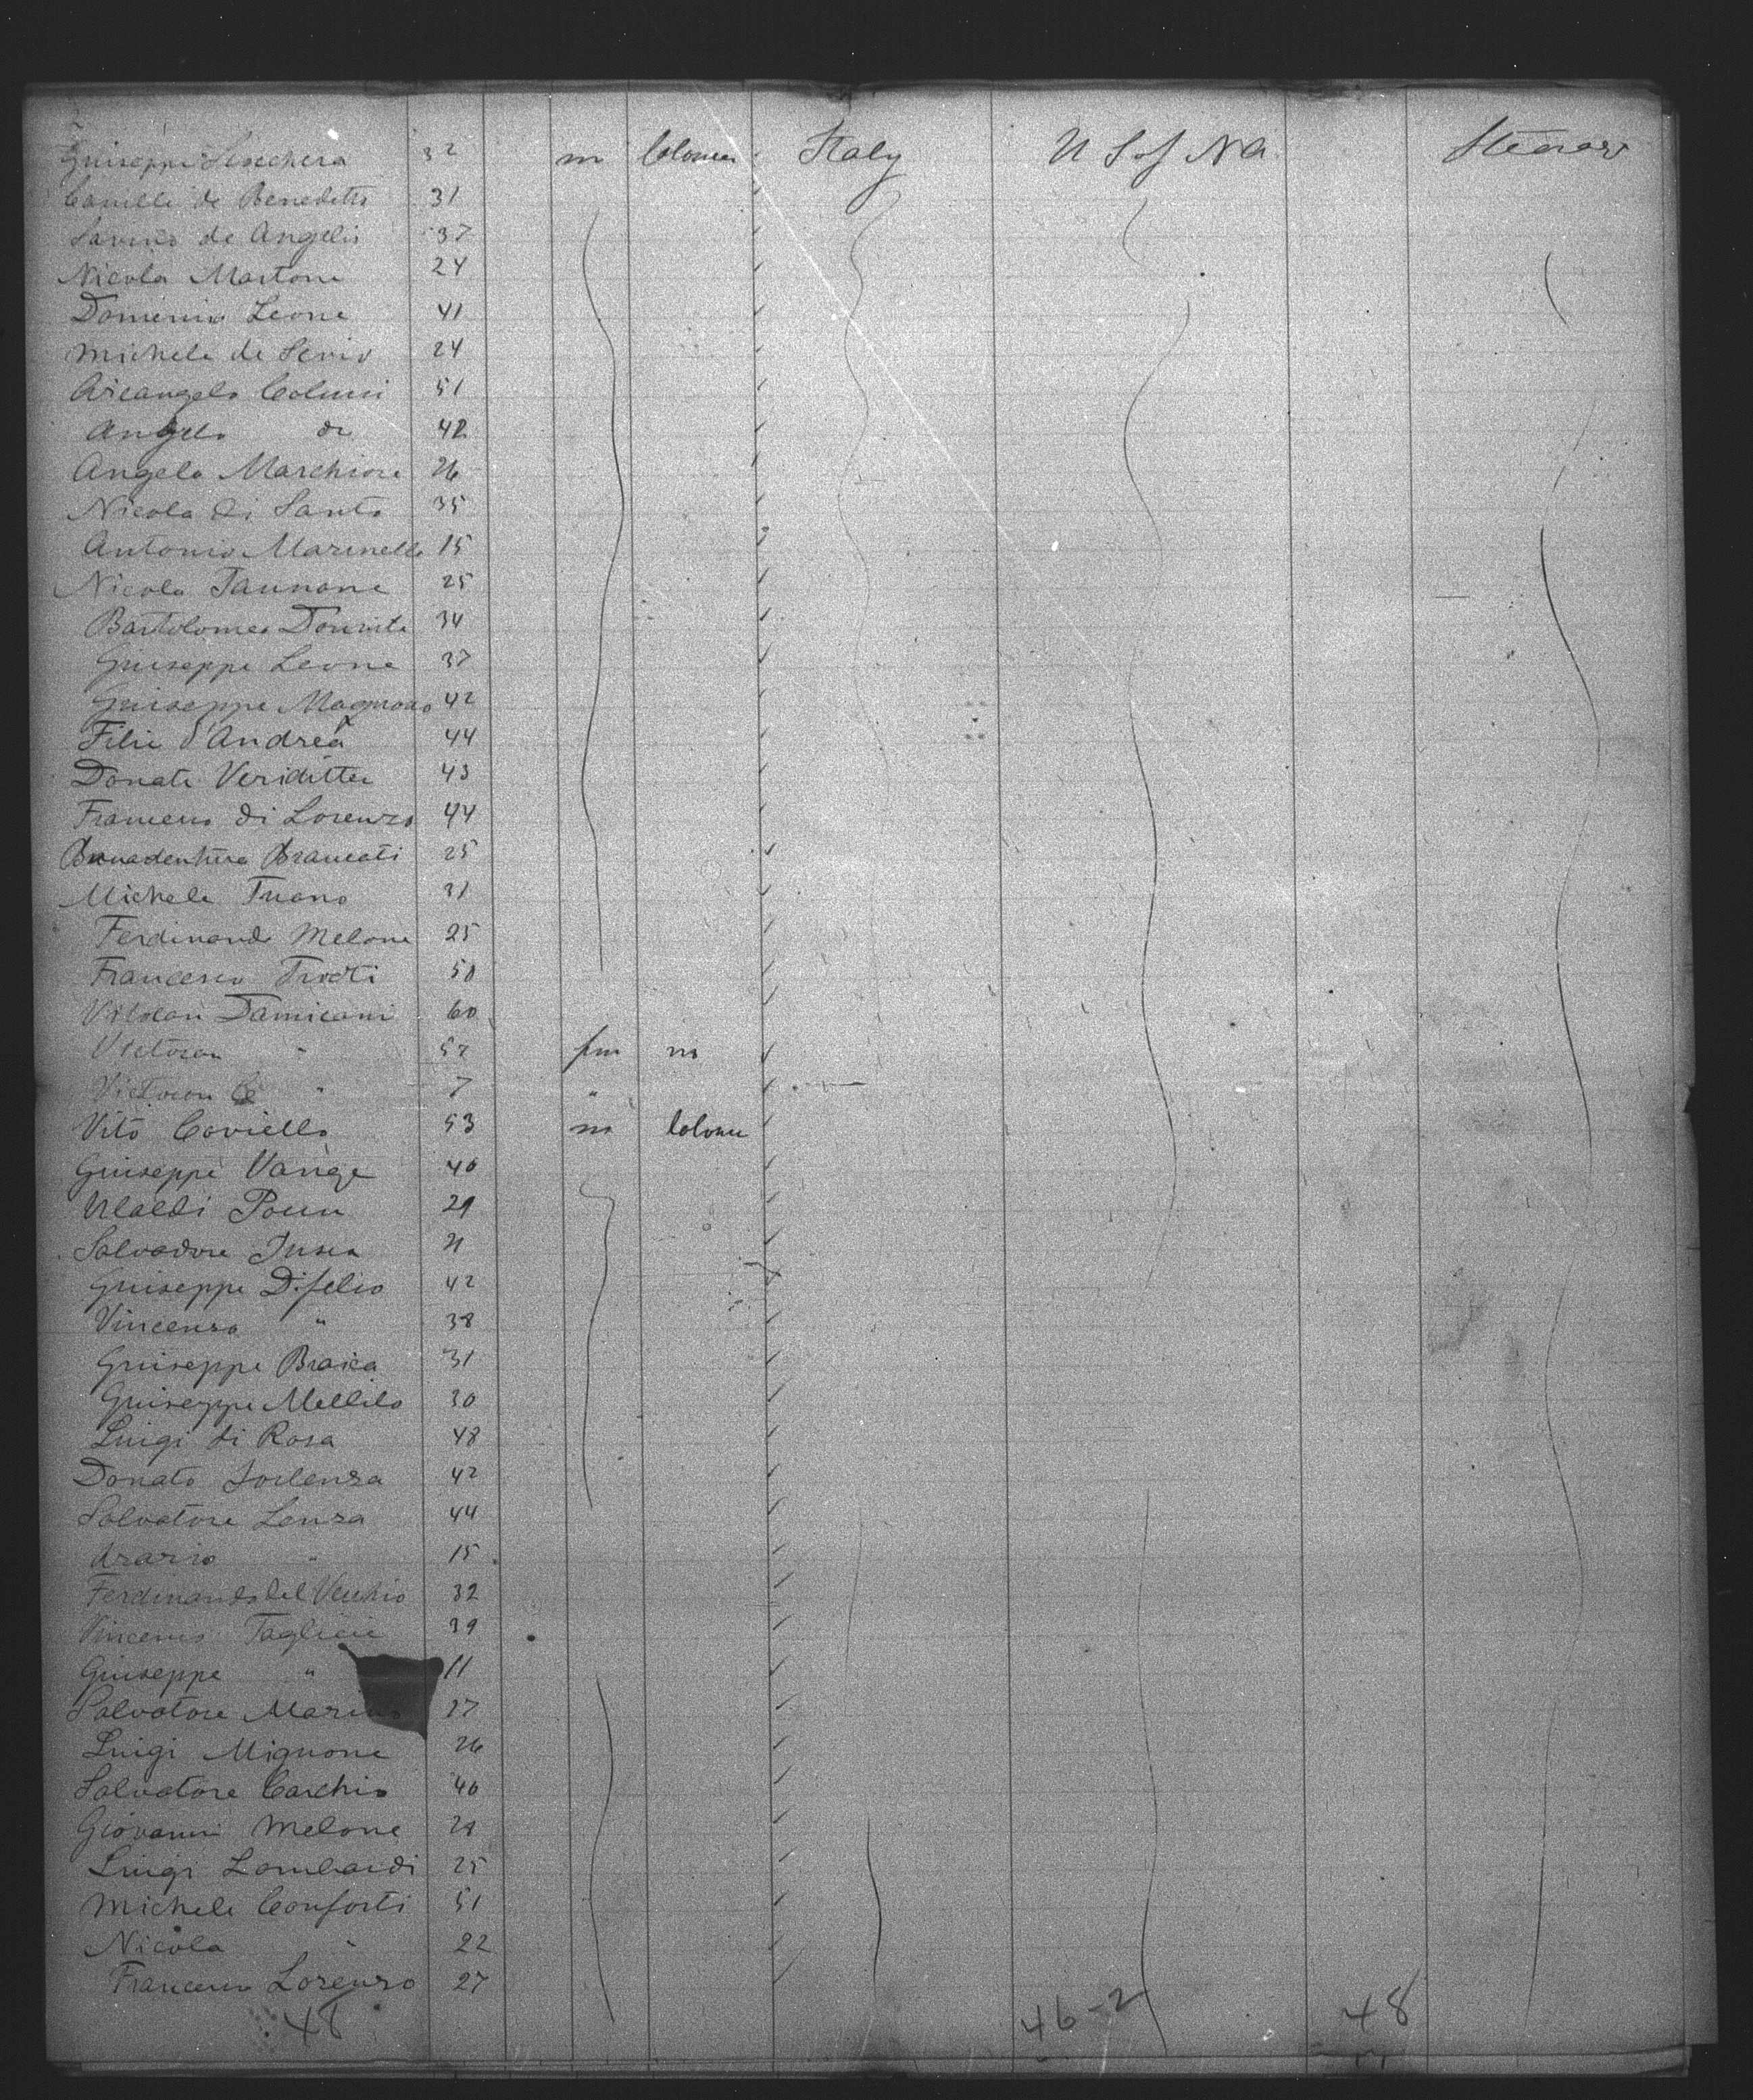 Guiseppi 32 m Colonu Italy U S of NA Steerage
Camille de Benedetto 31
Savino de Angelis 37
Nicola Martone 24
Domenico Leone 41
Michele de 24
Arcangelo Colucci 51
Angelo do 42
Angelo Marchione 26
Nicola di Santo 35
Antonio Marinello 15
Nicola Taunone 25
Bartolomeo 34
Guiseppi Leone 37
Guiseppe Magnono 42
Filie d'Andrea 44
Donati Veriditter 43
Francesco di Lorenzo 44
Brancati 25
Michele Truono 31
Ferdinando Melone 25
Francesco Trotti 50
Damicani 60
Victorca " 57 fm m
Victorca " 7 "
Vito Coviello 53 m Colonu
Guiseppe Vange 40
29
Salvadore 21
Guiseppe Difelio 42
Vincenso " 38
Guiseppe Braica 31
Guiseppe Mellilo 30
Luigi di Rosa 48
Donato 42
Salvatore Lensa 44
" 15
Ferdinando del Vecchio 32
Vincenso Taglieie 39
Giuseppe " 11
Salvatore Marino 27
Luigi Mignone 26
Salvatore Carchio 40
Giovanni Melone 29
Luigi Lombardi 25
Michele Conforti 51
Nicola " 22
Francesco Lorenzo 27
48 46-2 48